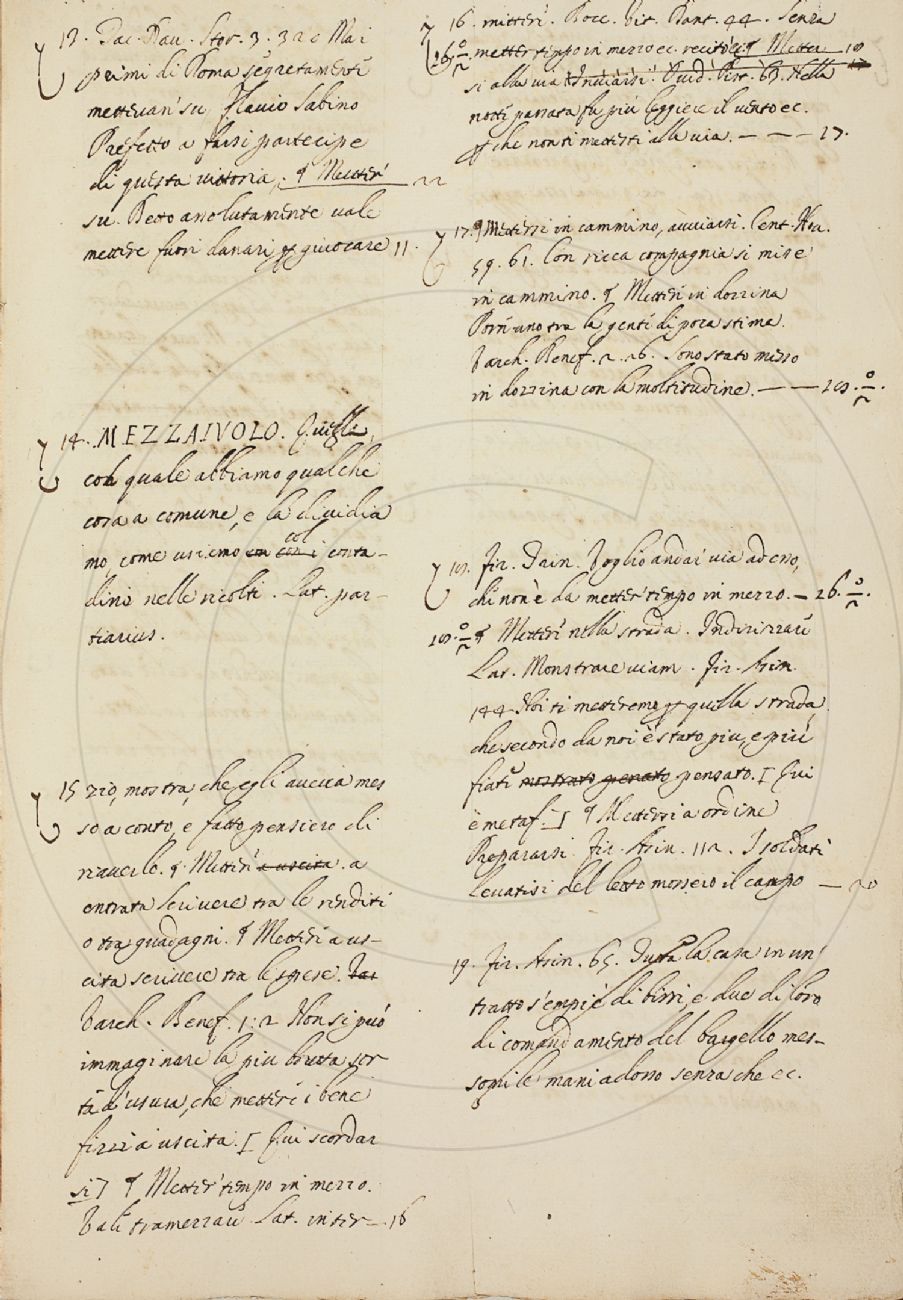 13. Tac. Dav. Stor. 3. 320 Ma i
primi di Roma segretamente
mettevan' su Flavio Sabino
Prefetto a farsi partecipe
di questa vittoria. ¶ Metter' 22
su. Detto assolutamente vale
mettere fuori danari p giuocare 11.
14. MEZZAIVOLO. Quello,
col quale abbiamo qualche
cosa a comune, e la dividia
mo, come usiamo con co' col i conta-
dini nelle ricolti. Lat. par-
tiarius.
15 zio, mostra, che egli aveva mes
so a conto, e fatto pensiero di
riaverlo. ¶ Metter' a uscita. a
entrata scrivere tra le rendite
o tra guadagni. ¶ Metter' a us-
cita scrivere tra le spese.
Varch. Benef. 1. 2 Non si può
immaginare la piu brutta sor
ta d'usura, che mettere i bene
fizzi a uscita. [Qui scordar
si] ¶ Metter' tempo in mezzo.
Vale tramezzare Lat. inter-. 16
16. mitteri. Bocc. Vit. Dant. 44. Senza
metter tempo in mezzo ec. recitò ec. ¶ Metter
si alla via Inviarsi. Ovid. Pist. 63. Nella
notte passata fu più leggiere il vento ec.
p che non ti mettesti alla via. — — — 17.
17. ¶ Mettersi in cammino, avviarsi. Cent. Nov.
59. 61. Con ricca compagnia si mise
in cammino. ¶ Metter' in dozzina
Porr' uno tra la gente di poca stima.
Varch. Benef. 2. 26. Sono stato messo
in dozzina con la moltitudine. — — 18.
18. Fir. Trin. Voglio andar' via adesso,
che non è da metter tempo in mezzo. — 26.
18. ¶ Metter' nella strada. Indirizzare
Lat. Monstrare viam. Fir. Asin.
144 Noi ti metteremo p quella strada,
che secondo da noi è stato piu, e più
fiate mostrato pensato pensato. [Qui
è metaf.] ¶ Mettersi a ordine
Prepararsi. Fir. Asin. 112. I soldati
levatisi del letto mossero il campo — 20
19. Fir. Asin. 65. Tutta la casa in un'
tratto s'empiè di birri, e due di loro
di comandamento del bargello mes-
somi le mani adosso senza che ec.